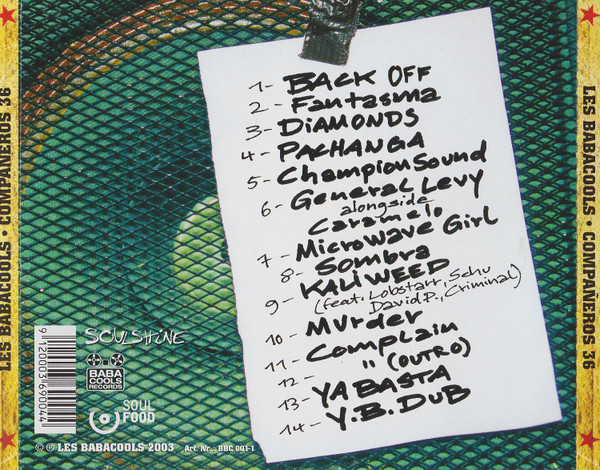 LES BABACOOLS • COMPAÑEROS 36
1- BACK OFF
2- Fantasma
3- DiAMONDS
4- PACHANGA
5- Champion Sound
6- General Levy
alongside
Caramelo
7- Microwave Girl
8- Sombra
9- KALI WEED
(feat. Lobstarr, Schu
David P., Criminal)
10- MUrder
11- Complain
12- " (OUTRO)
13- YA BASTA
14- Y.B. DUB
SOULSHiNE
BABA
COOLS
RECORDS
SOUL
FOOD
9 120003 690044
© ℗ LES BABACOOLS 2003 Art. Nr.: BBC 001-1
LES BABACOOLS • COMPAÑEROS 36